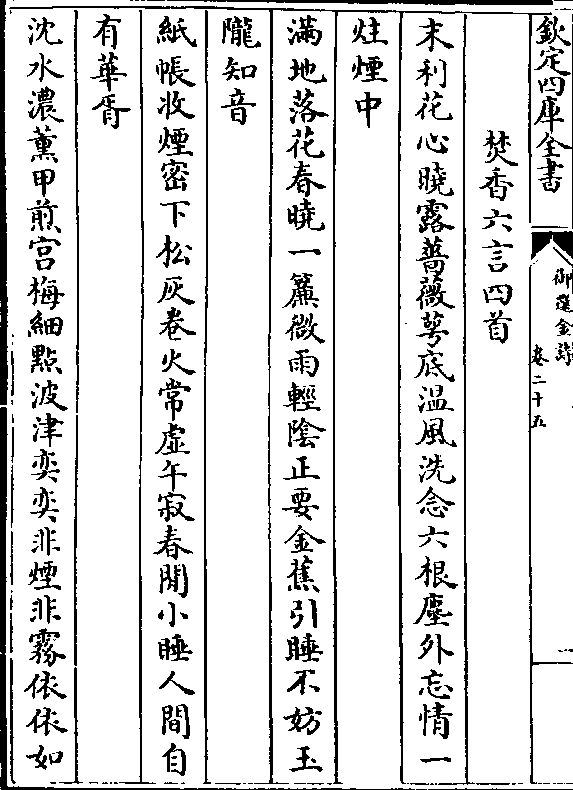 欽定四庫全書
御選金詩
卷二十五
焚香六言四首
末利花心曉露薔薇萼底温風洗念六根塵外忘情一
炷煙中
滿地落花春曉一簾微雨輕陰正要金蕉引睡不妨玉
隴知音
紙帳收煙密下松灰卷火常虛午寂春閒小睡人間自
有華胥
沈水濃薰甲煎宫梅細點波津奕奕非煙非霧依依如